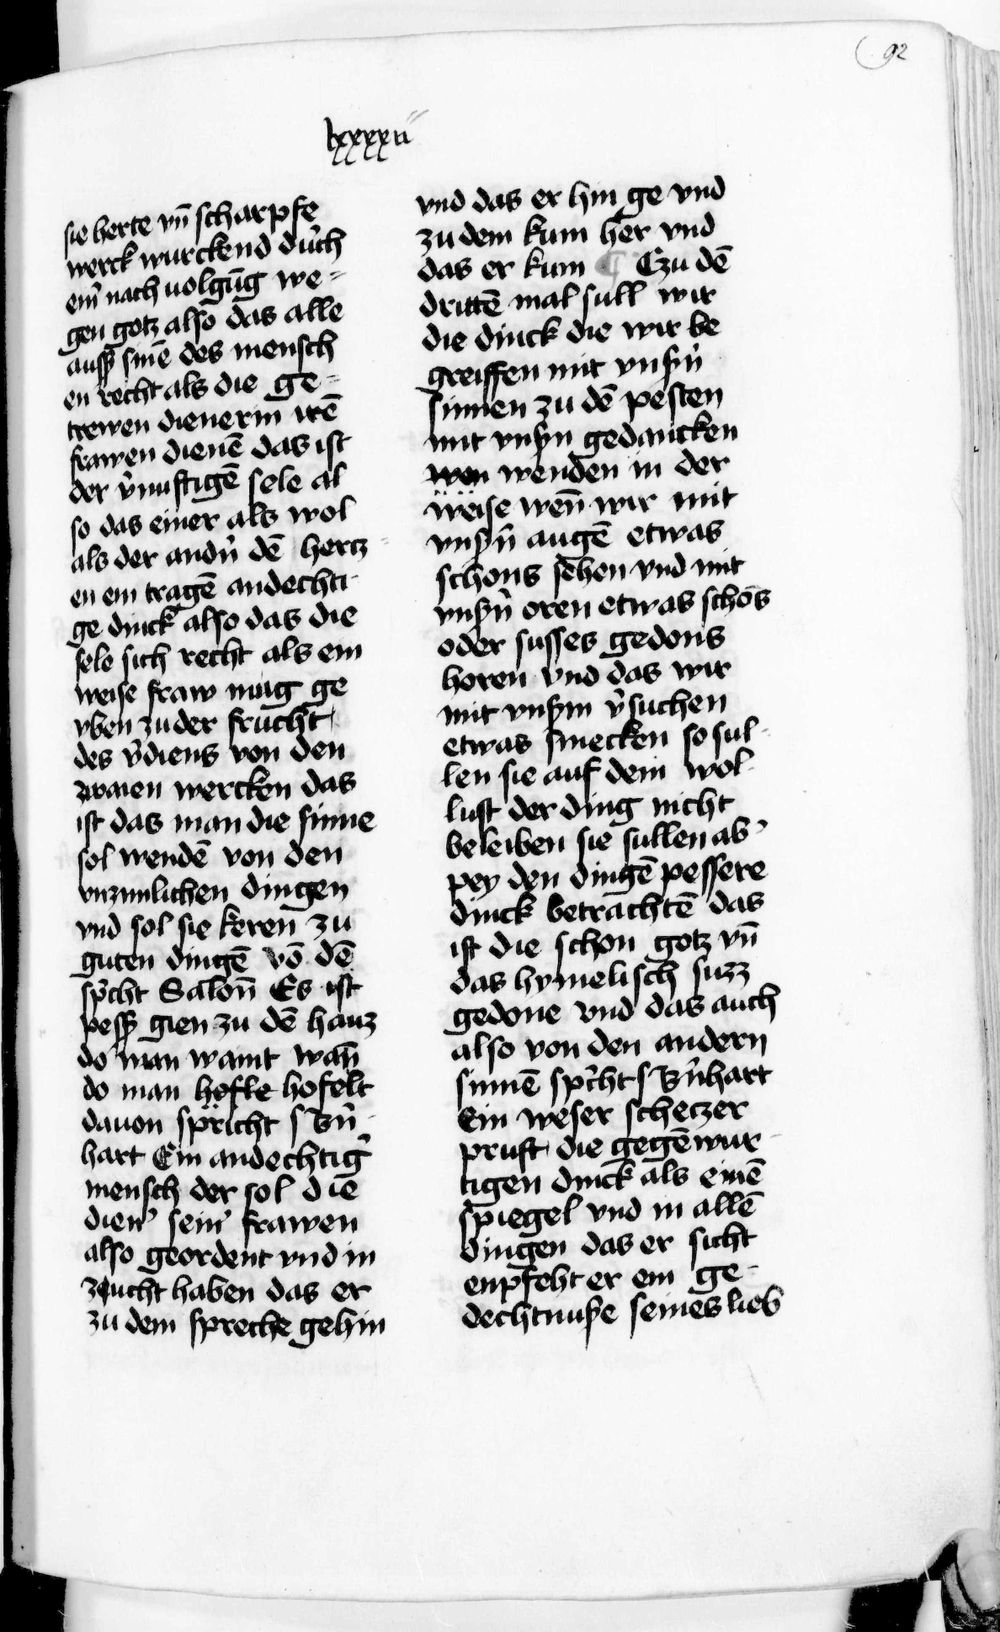 92
lxxxxii
sie herte vn̄ scharpfe
werck wurckend durch
ein̄ nach uolgūg we=
gen gotz also das alle
ausß sinē des mensch
en recht als die ge=
trewen dienerin irē
frawen dienē das ist
der v̄nuftigē sele al
so das einer als wol
als der andn̄ dē hertz=
en ein tragē andechti-
ge dinck also das die
sele sich recht als ein
weise fraw mug ge
vben zu der frucht
des v̄diens von den
zwaien wercken das
ist das man die sinne
sol wendē von den
vnzimlichen dingen
vnd sol sie keren zu
guten dingē vō dē
sp̄cht Salon̄ Es ist
pesß gien zu dē hauz
do man waint wan̄
do man hofle hofelt
dauon spricht s Bn̄
hart Ein andechtiḡ
mensch der sol die
dien̄ sein̄ frawen
also geordent vnd in
zucht haben das er
zu dem spreche gehin
vnd das er hin ge vnd
zu dem kum her vnd
das er kum ¶ Czu dē
drittē mal sull wir
die dinck die wir be
greiffen mit vnsn̄
sinnen zu dē pesten
mit vnsn̄ gedancken
wen wenden in der
weise wen̄ wir mit
vnsn̄ augē etwas
schons sehen vnd mit
vnsn̄ oren etwas schōs
oder susses gedons
horen vnd das wir
mit vnsm v̄suchen
etwas smecken so sul-
len sie auf dem wol-
lust der ding nicht
beleiben sie sullen ab̄
pey den dingē pessere
dinck betrachtē das
ist die schon gotz vn̄
das hymelisch suzz
gedone vnd das auch
also von den andern
sinnē sp̄cht s Bn̄hart
Ein weser schetzer
pruft die gegēwur-
tigen dinck als einē
spiegel vnd in allē
dingen das er sicht
enpfeht er ein ge-
dechtnuße seines lieb